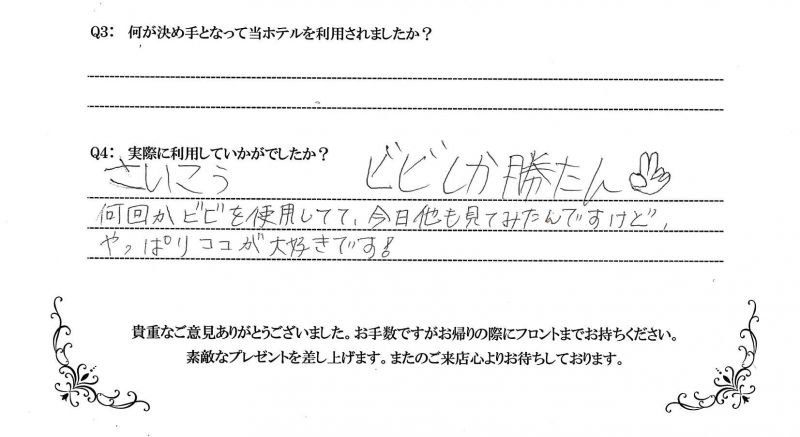 Q3: 何が決め手となって当ホテルを利用されましたか？
Q4: 実際に利用していかがでしたか？
さいこう ビビしか勝たん
何回かビビを使用してて、今日他も見てみたんですけど、
やっぱりココが大好きです!
貴重なご意見ありがとうございました。お手数ですがお帰りの際にフロントまでお持ちください。
素敵なプレゼントを差し上げます。またのご来店心よりお待ちしております。